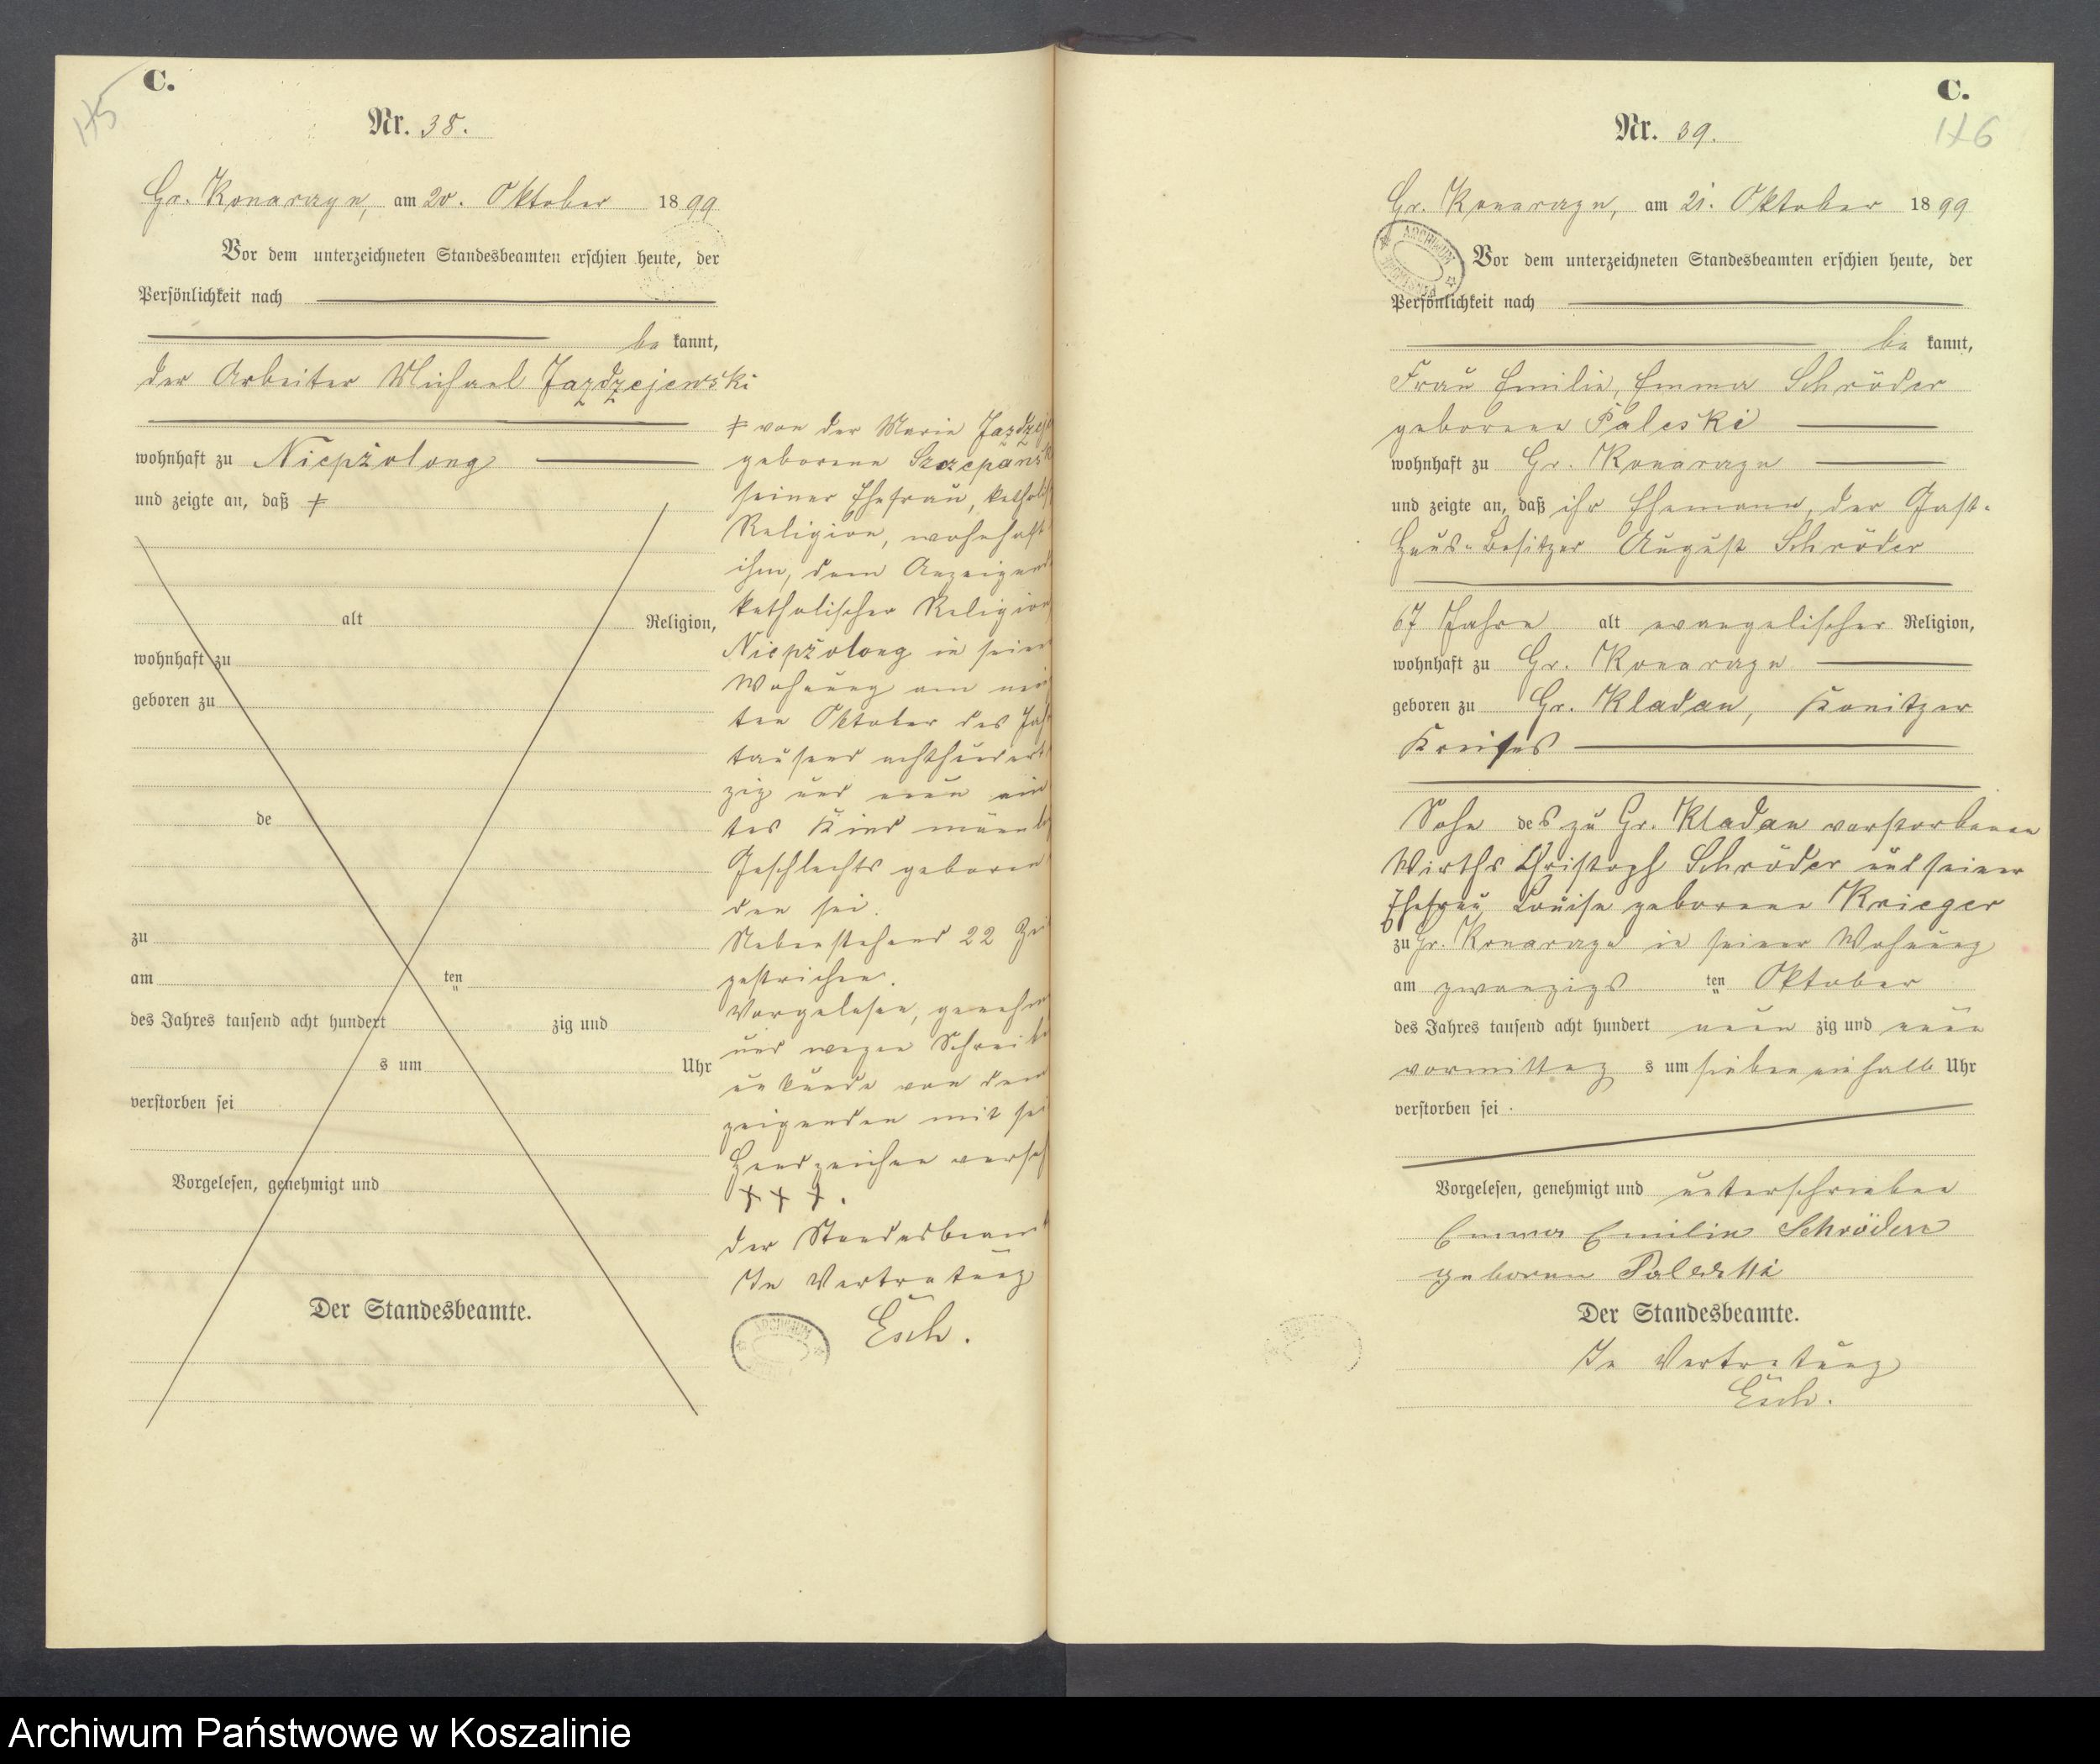 C.
175
Nr. 38.
Gr. Konarczyn, am 20. Oktober 1899
Vor dem unterzeichneten Standesbeamten erschien heute, der
Persönlichkeit nach
be kannt,
der Arbeiter Michael Jazdzejewski
wohnhaft zu Niepżolong
und zeigte an, daß
alt Religion,
wohnhaft zu
geboren zu
de
zu
am ten
des Jahres tausend acht hundert zig und
s um Uhr
verstorben sei
Vorgelesen, genehmigt und
Der Standesbeamte.
von der Marie Jazdzej
geborene Szczepansk
seiner Ehefrau, katholisch
Religion, wohnhaft
ihm, dem Anzeigend
katholischer Religion
Niepżolong in seiner
Wohnung am neun
ten Oktober des Jah
tausend achthundert
zig und neun ein
tes Kind männli
Geschlechts geboren
den sei.
Nebenstehend 22 Zei
gestrichen.
Vorgelesen, genehm
und wegen Schreibe
unkunde von dem
zeigenden mit sei
Handzeichen verseh
+ + +.
Der Standesbeamt
In Vertretung
Esch.
ARCHIWUM
C.
176
Nr. 39.
Gr. Konarczyn, am 21. Oktober 1899
ARCHIWUM
Vor dem unterzeichneten Standesbeamten erschien heute, der
Persönlichkeit nach
be kannt,
Frau Emilie, Emma Schröder
geborene Paleski
wohnhaft zu Gr. Konarczyn
und zeigte an, daß ihr Ehemann, der Gast-
Haus-Besitzer August Schröder
67 Jahre alt evangelischer Religion,
wohnhaft zu Gr. Konarczyn
geboren zu Gr. Kladau, Konitzer
Kreises
Sohn des zu Gr. Kladau verstorbenen
Wirths Christoph Schröder und seiner
Ehefrau Louise geborene Krieger
zu Gr. Konarczyn in seiner Wohnung
am zwanzigs ten Oktober
des Jahres tausend acht hundert neun zig und neun
vormittag s um sieben ein halb Uhr
verstorben sei.
Vorgelesen, genehmigt und unterschrieben
Emma Emilie Schröder
geboren Paleski
Der Standesbeamte.
In Vertretung
Esch.
Archiwum Państwowe w Koszalinie